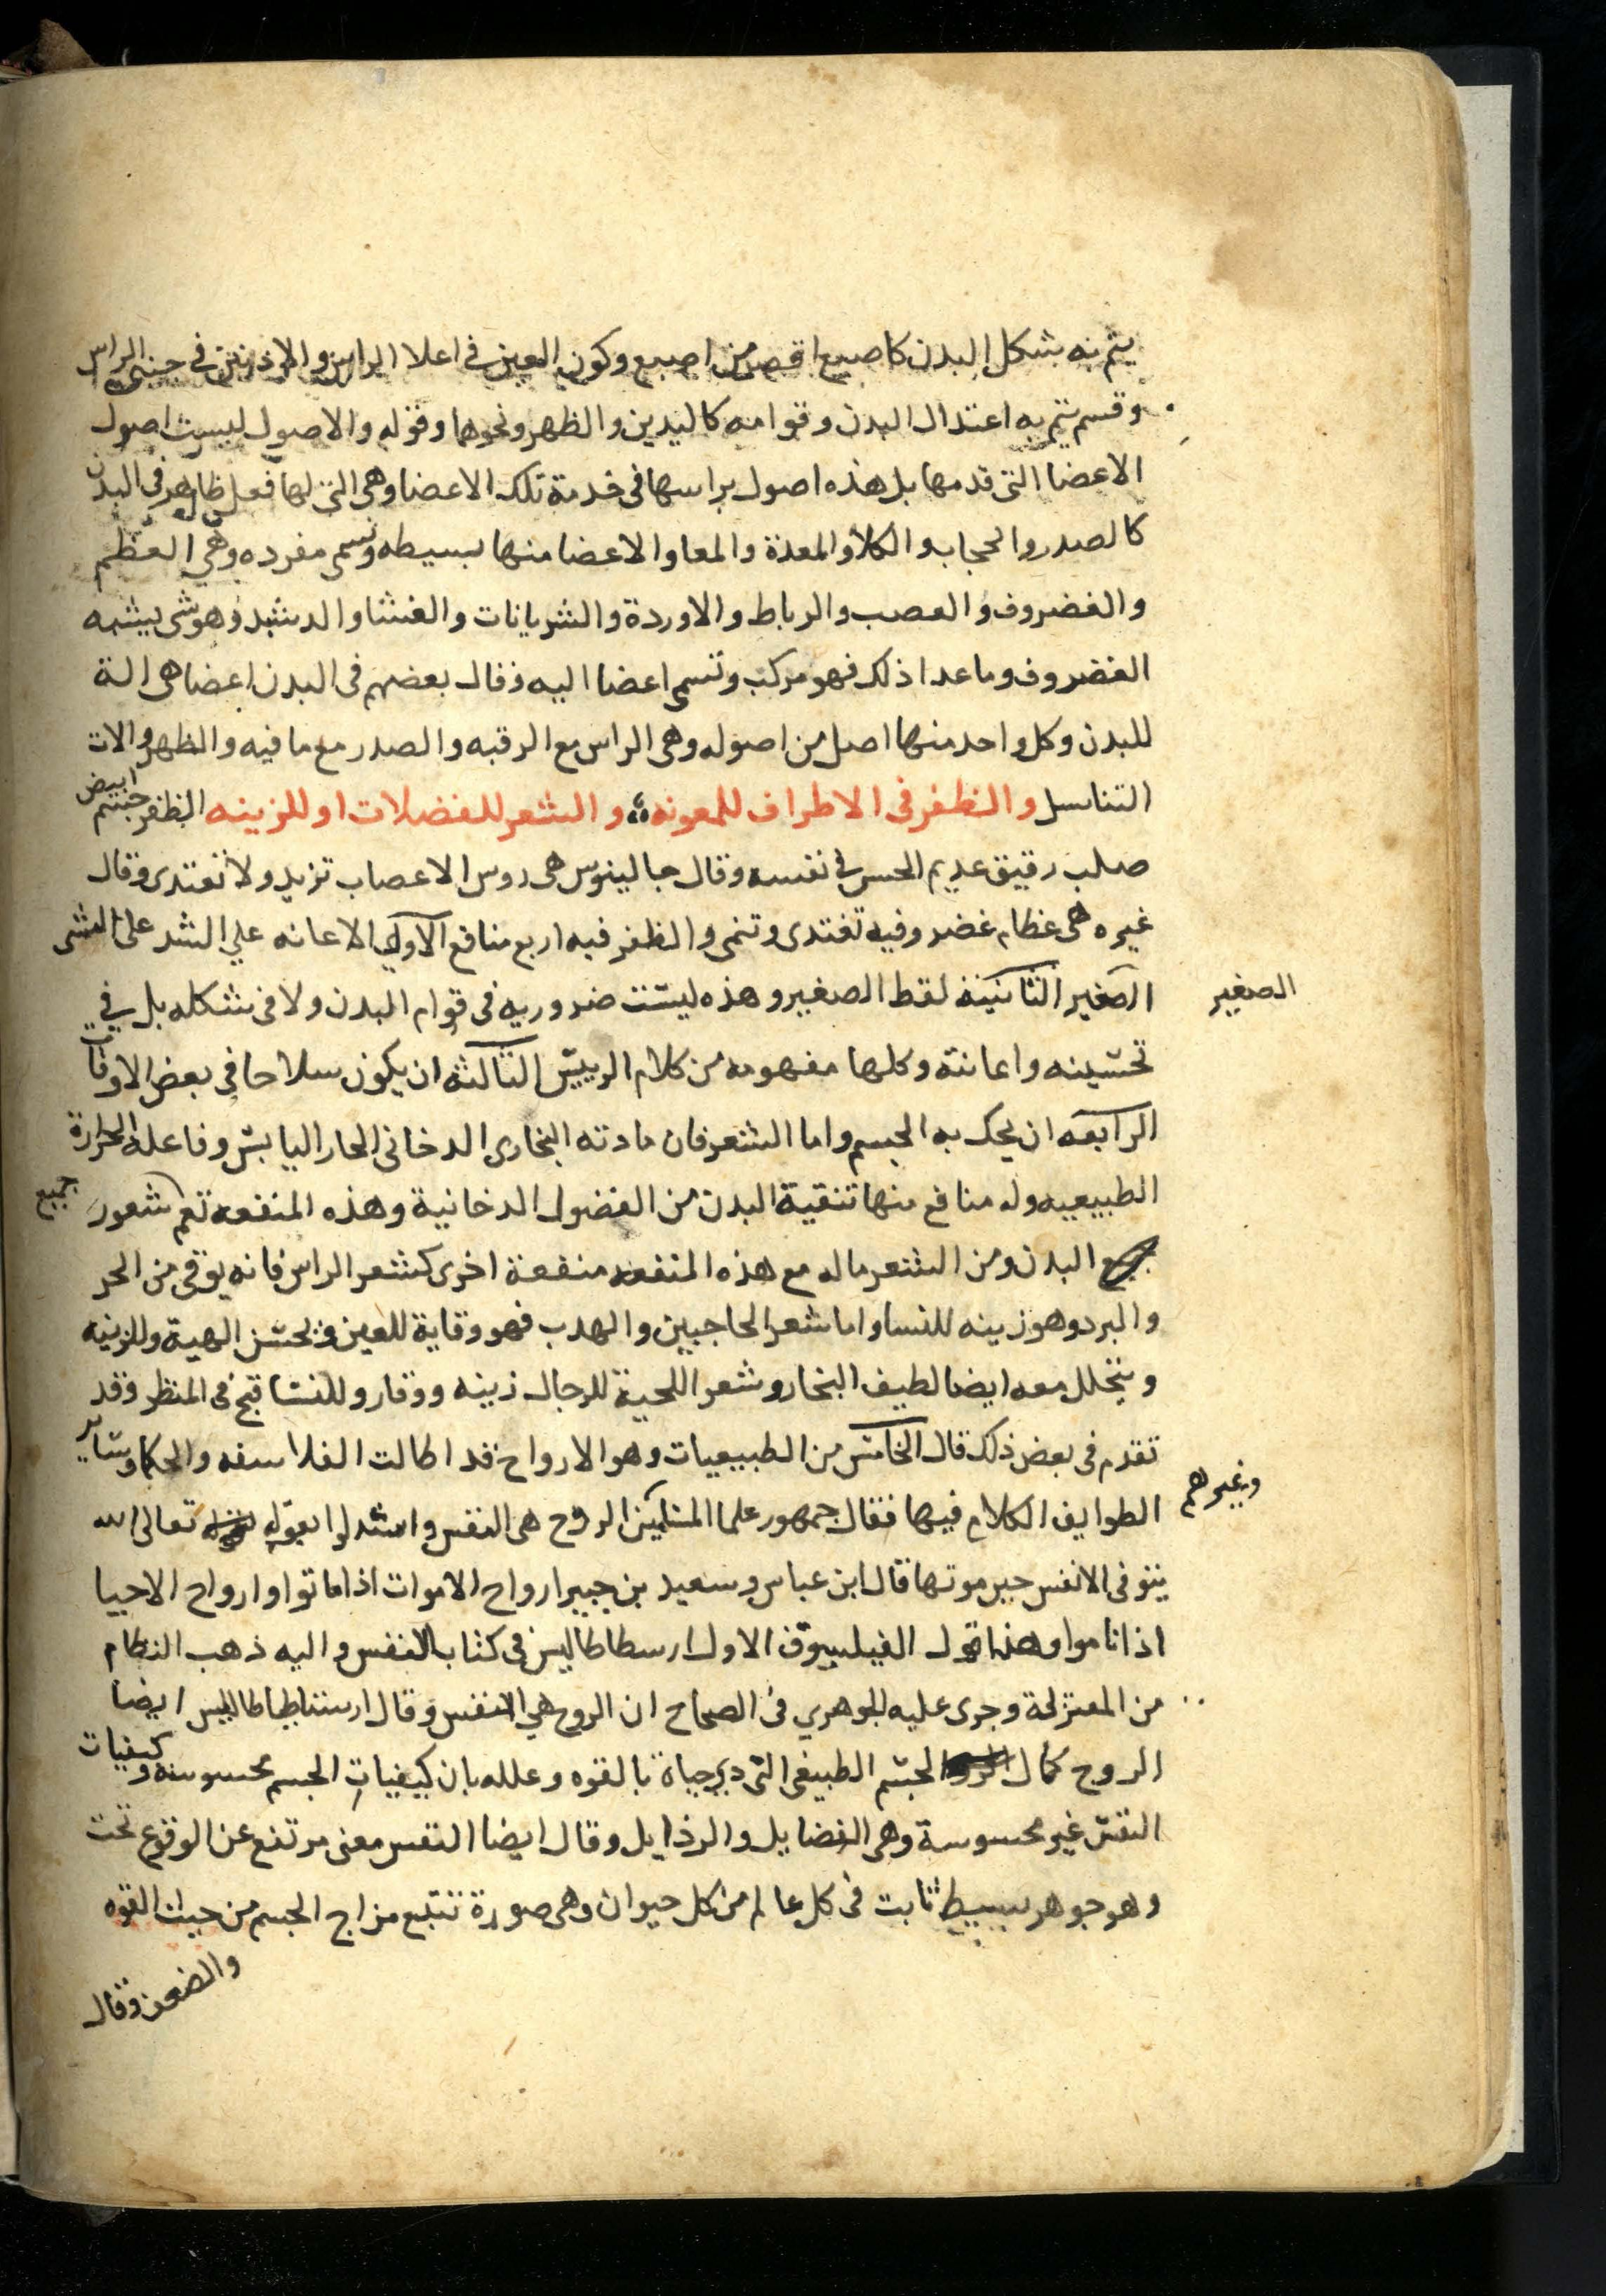 يتم به شكل البدن كاصبع اقصر من اصبع وكون العين في اعلا الراس والاذنين في جنبي الراس
وقسم يتم به اعتدال البدن وقوامه كاليدين والظهر ونحوهما وقوله والاصول ليست اصول
الاعضا التى قدمها بل هذه اصول براسها فى خدمة تلك الاعضا وهى التى لها فعل ظاهر فى البدن
كالصدر والحجاب والكلا والمعدة والمعا والاعضا منها بسيطه وتسمى مفرده وهي العظم
والغضروف والعصب والرباط والاوردة والشريانات والغشا والدشبد وهو شى يشبه
الغضروف وما عدا ذلك فهو مركب وتسمى اعضا اليه وقال بعضهم فى البدن اعضا هى الة
للبدن وكل واحد منها اصل من اصوله وهى الراس مع الرقبه والصدر مع ما فيه والظهر والات
التناسل والظفر فى الاطراف للمعونه والشعر للفضلات او للزينه الظفر جسم ابيض
صلب رقيق عديم الحس في نفسه وقال جالينوس هى روس الاعصاب تزيد ولا تغتدى وقال
غيره هى عظام غضروفيه تغتدى وتنمى والظفر فيه اربع منافع الاولي الاعانه علي الشد على الشى
الصغير الثانية لقط الصغير وهذه ليست ضروريه فى قوام البدن ولا فى شكله بل في
الصغير
تحسينه واعانة وكلها مفهومه من كلام الرييس الثالثه ان يكون سلاحا في بعض الاوقات
الرابعه ان يحك به الجسم واما الشعر فان مادته البخارى الدخانى الحار اليابس وفاعله الحرارة
الطبيعيه وله منافع منها تنقية البدن من الفضول الدخانية وهذه المنفعه تعم شعور جميع
البدن ومن الشعر ماله مع هذه المنفعه منفعة اخرى كشعر الراس فانه يوقى من الحر
والبرد وهو زينه للنسا واما شعر الحاجبين والهدب فهو وقاية للعين وبحسن الهية وللزينه
ويتحلل معه ايضا لطيف البخار وشعر اللحية للرجال زينه ووقار وللنسا قبح فى المنظر وقد
تقدم فى بعض ذلك قال الخامس من الطبيعيات وهو الارواح قد اطالت الفلاسفه والحكما وساير
الطوايف الكلام فيها فقال جمهور علما المتكلمين الروح هى النفس واستدلوا بقوله تعالى الله
وغيرهم
يتوفى الانفس حين موتها قال ابن عباس وسعيد بن جبير ارواح الاموات اذا ماتوا وارواح الاحيا
اذا ناموا وهذا قول الفيلسوف الاول ارسطاطاليس فى كتاب النفس واليه ذهب النظام
من المعتزلة وجرى عليه الجوهري فى الصحاح ان الروح هي النفس وقال ارسطاطاليس ايضا
الروح كمال الجسم الطبيعى التى دي حياة بالقوه وعلله بان كيفيات الجسم محسوسه وكيفيات
النفس غير محسوسة وهى الفضايل والرذايل وقال ايضا النفس معنى مرتفع عن الوقوع تحت
وهو جوهر بسيط ثابت فى كل عالم من كل حيوان وهى صورة تتبع مزاج الجسم من حيث القوه
والضعف وقال